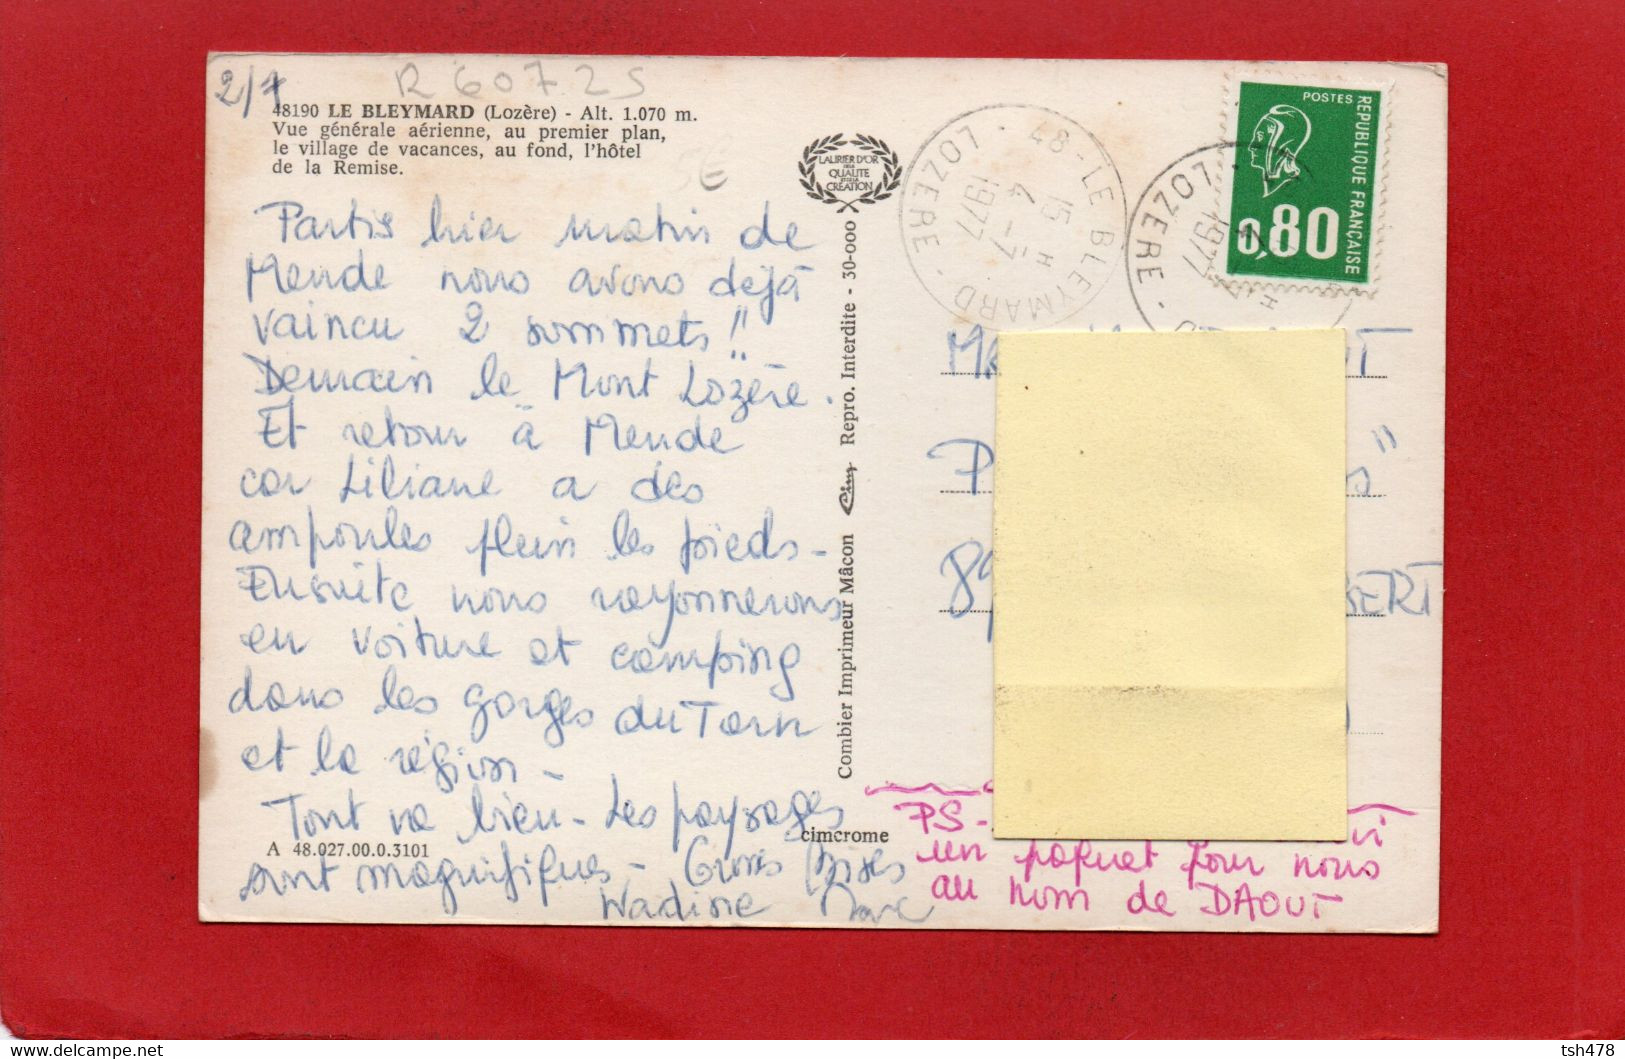 2/7
R 607 25
48190 LE BLEYMARD (Lozère) - Alt. 1.070 m.
Vue générale aérienne, au premier plan,
le village de vacances, au fond, l'hôtel
de la Remise.
5€
Partis hier matin de
Mende nous avons déjà
vaincu 2 sommets !!
Demain le Mont Lozère.
Et retour à Mende
car Liliane a des
ampoules plein les pieds -
Ensuite nous rayonnerons
en voiture et camping
dans les gorges du Tarn
et la région -
Tout va bien - Les paysages
sont magnifiques - Gros Bises
Nadine Marc
A 48.027.00.0.3101
cimcrome
LAURIER D'OR
DE LA
QUALITE
ET DE LA
CREATION
Combier Imprimeur Mâcon Cim Repro. Interdite - 30-000
48 - LE BLEYMARD - LOZERE
15 H
4 - 7
1977
LOZERE
1977
POSTES
REPUBLIQUE FRANÇAISE
0,80
PS -
un paquet pour nous
au nom de DAOUT
tsh478